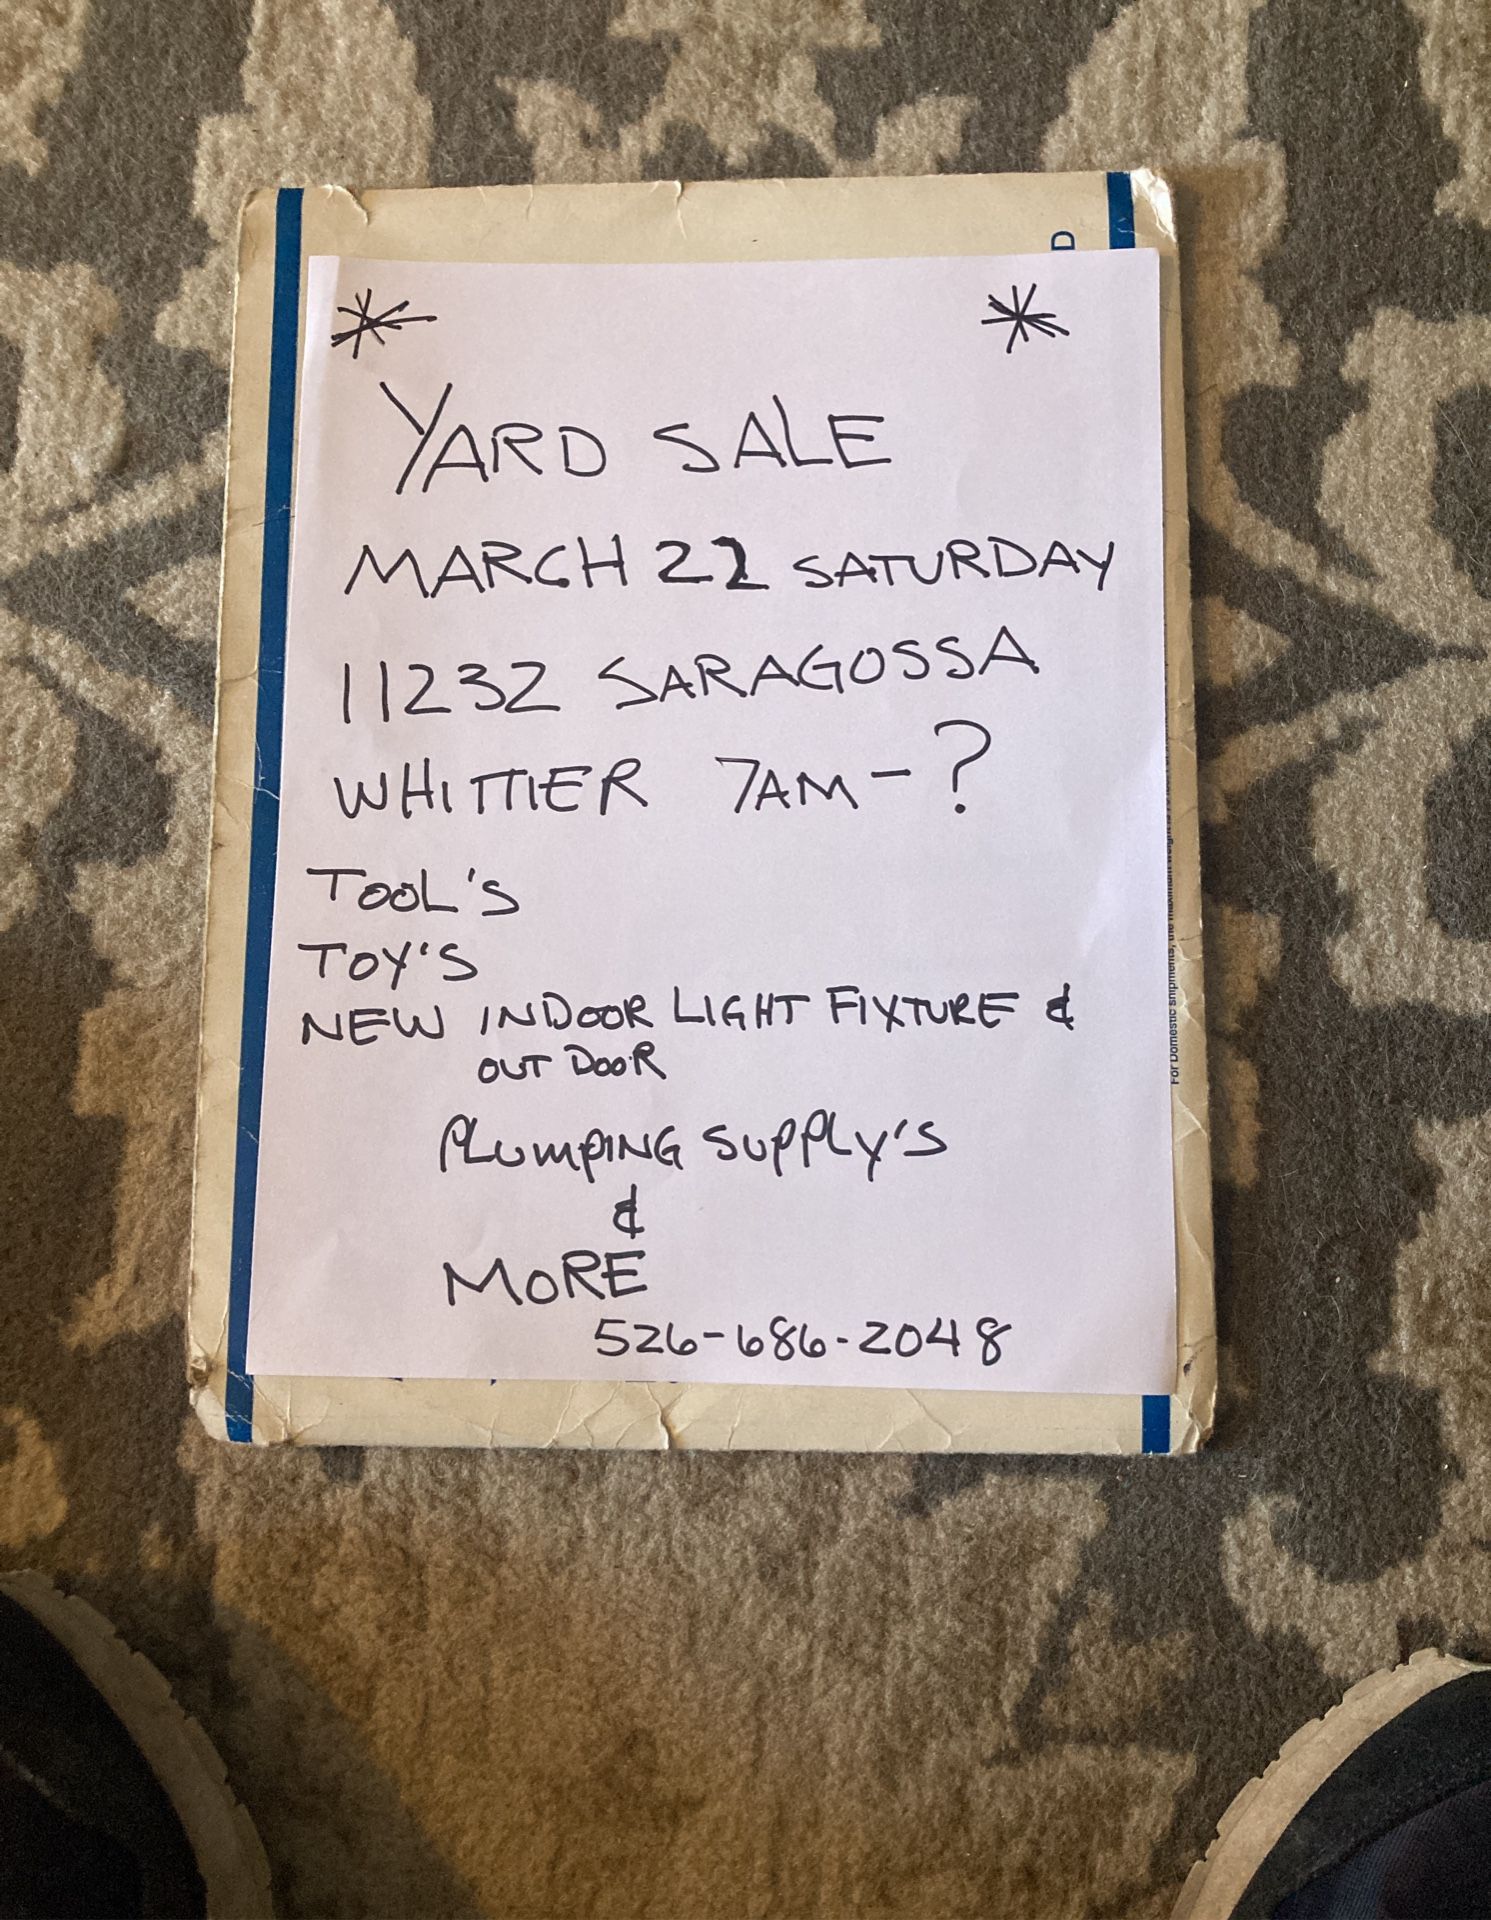 D
* *
YARD SALE
MARCH 22 SATURDAY
11232 SARAGOSSA
WHITTIER 7AM-?
TOOL'S
TOY'S
NEW INDOOR LIGHT FIXTURE &
OUT DOOR
PLUMPING SUPPLY'S
&
MORE
526-686-2048
For Domestic shipments, the maximum weight